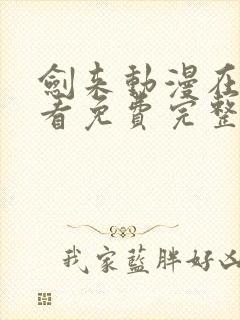 劍来動漫在
看免費完整
我家藍胖好凶